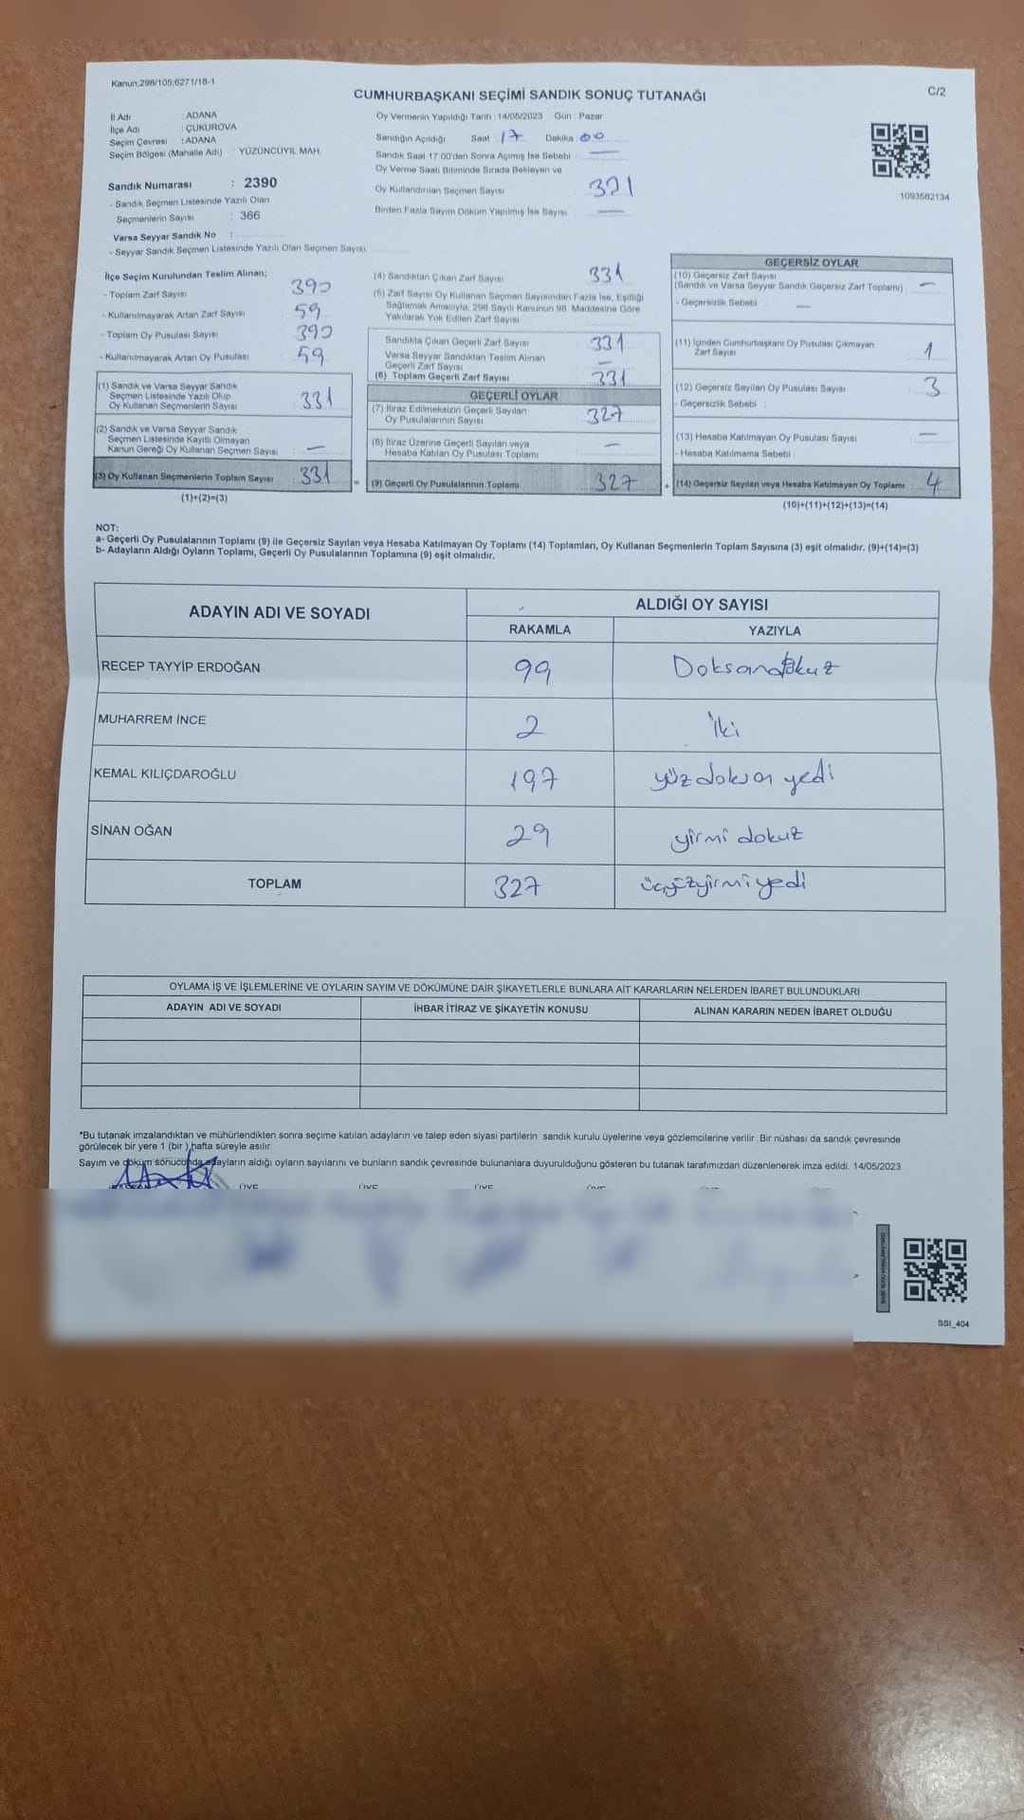 Kanun:298/105;6271/18-1
C/2
CUMHURBAŞKANI SEÇİMİ SANDIK SONUÇ TUTANAĞI
İl Adı : ADANA
İlçe Adı : ÇUKUROVA
Seçim Çevresi : ADANA
Seçim Bölgesi (Mahalle Adı) : YÜZÜNCÜYIL MAH.
Sandık Numarası : 2390
- Sandık Seçmen Listesinde Yazılı Olan
Seçmenlerin Sayısı : 366
Varsa Seyyar Sandık No :
- Seyyar Sandık Seçmen Listesinde Yazılı Olan Seçmen Sayısı
Oy Vermenin Yapıldığı Tarih : 14/05/2023 Gün : Pazar
Sandığın Açıldığı Saat 17 Dakika 00
Sandık Saat 17:00'den Sonra Açılmış İse Sebebi : —
Oy Verme Saati Bitiminde Sırada Bekleyen ve
Oy Kullandırılan Seçmen Sayısı 331
Birden Fazla Sayım Döküm Yapılmış İse Sayısı —
1093582134
İlçe Seçim Kurulundan Teslim Alınan;
- Toplam Zarf Sayısı 390
- Kullanılmayarak Artan Zarf Sayısı 59
- Toplam Oy Pusulası Sayısı 390
- Kullanılmayarak Artan Oy Pusulası 59
(1) Sandık ve Varsa Seyyar Sandık
Seçmen Listesinde Yazılı Olup
Oy Kullanan Seçmenlerin Sayısı 331
(2) Sandık ve Varsa Seyyar Sandık
Seçmen Listesinde Kayıtlı Olmayan
Kanun Gereği Oy Kullanan Seçmen Sayısı : —
(3) Oy Kullanan Seçmenlerin Toplam Sayısı 331
(1)+(2)=(3)
(4) Sandıktan Çıkan Zarf Sayısı 331
(5) Zarf Sayısı Oy Kullanan Seçmen Sayısından Fazla İse, Eşitliği
Sağlamak Amacıyla, 298 Sayılı Kanunun 98. Maddesine Göre
Yakılarak Yok Edilen Zarf Sayısı
Sandıkta Çıkan Geçerli Zarf Sayısı 331
Varsa Seyyar Sandıktan Teslim Alınan
Geçerli Zarf Sayısı —
(6) Toplam Geçerli Zarf Sayısı 331
GEÇERLİ OYLAR
(7) İtiraz Edilmeksizin Geçerli Sayılan
Oy Pusulalarının Sayısı 327
(8) İtiraz Üzerine Geçerli Sayılan veya
Hesaba Katılan Oy Pusulası Toplamı —
= (9) Geçerli Oy Pusulalarının Toplamı 327
GEÇERSİZ OYLAR
(10) Geçersiz Zarf Sayısı
(Sandık ve Varsa Seyyar Sandık Geçersiz Zarf Toplamı) —
- Geçersizlik Sebebi —
(11) İçinden Cumhurbaşkanı Oy Pusulası Çıkmayan
Zarf Sayısı 1
(12) Geçersiz Sayılan Oy Pusulası Sayısı 3
- Geçersizlik Sebebi :
(13) Hesaba Katılmayan Oy Pusulası Sayısı —
- Hesaba Katılmama Sebebi :
+ (14) Geçersiz Sayılan veya Hesaba Katılmayan Oy Toplamı 4
(10)+(11)+(12)+(13)=(14)
NOT:
a- Geçerli Oy Pusulalarının Toplamı (9) ile Geçersiz Sayılan veya Hesaba Katılmayan Oy Toplamı (14) Toplamları, Oy Kullanan Seçmenlerin Toplam Sayısına (3) eşit olmalıdır. (9)+(14)=(3)
b- Adayların Aldığı Oyların Toplamı, Geçerli Oy Pusulalarının Toplamına (9) eşit olmalıdır.
ADAYIN ADI VE SOYADI
ALDIĞI OY SAYISI
RAKAMLA YAZIYLA
RECEP TAYYİP ERDOĞAN 99 Doksandokuz
MUHARREM İNCE 2 İki
KEMAL KILIÇDAROĞLU 197 yüzdoksan yedi
SİNAN OĞAN 29 yirmi dokuz
TOPLAM 327 üçyüzyirmiyedi
OYLAMA İŞ VE İŞLEMLERİNE VE OYLARIN SAYIM VE DÖKÜMÜNE DAİR ŞİKAYETLERLE BUNLARA AİT KARARLARIN NELERDEN İBARET BULUNDUKLARI
ADAYIN ADI VE SOYADI İHBAR İTİRAZ VE ŞİKAYETİN KONUSU ALINAN KARARIN NEDEN İBARET OLDUĞU
*Bu tutanak imzalandıktan ve mühürlendikten sonra seçime katılan adayların ve talep eden siyasi partilerin sandık kurulu üyelerine veya gözlemcilerine verilir. Bir nüshası da sandık çevresinde
görülecek bir yere 1 (bir) hafta süreyle asılır.
Sayım ve döküm sonucunda adayların aldığı oyların sayılarını ve bunların sandık çevresinde bulunanlara duyurulduğunu gösteren bu tutanak tarafımızdan düzenlenerek imza edildi. 14/05/2023
ÜYE ÜYE ÜYE
SSI_404